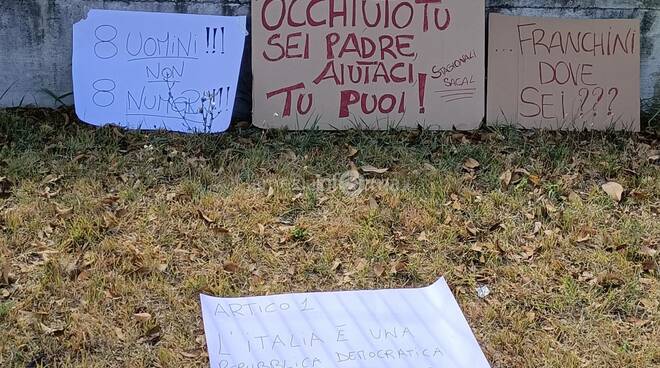 8 UOMINI!!!
NON
8 NUMERI!!!
OCCHIUTO TU
SEI PADRE,
AIUTACI,
TU PUOI!
STAGIONALI
SACAL
...FRANCHINI
DOVE
SEI???
ARTICO 1
L'ITALIA È UNA
REPUBBLICA DEMOCRATICA